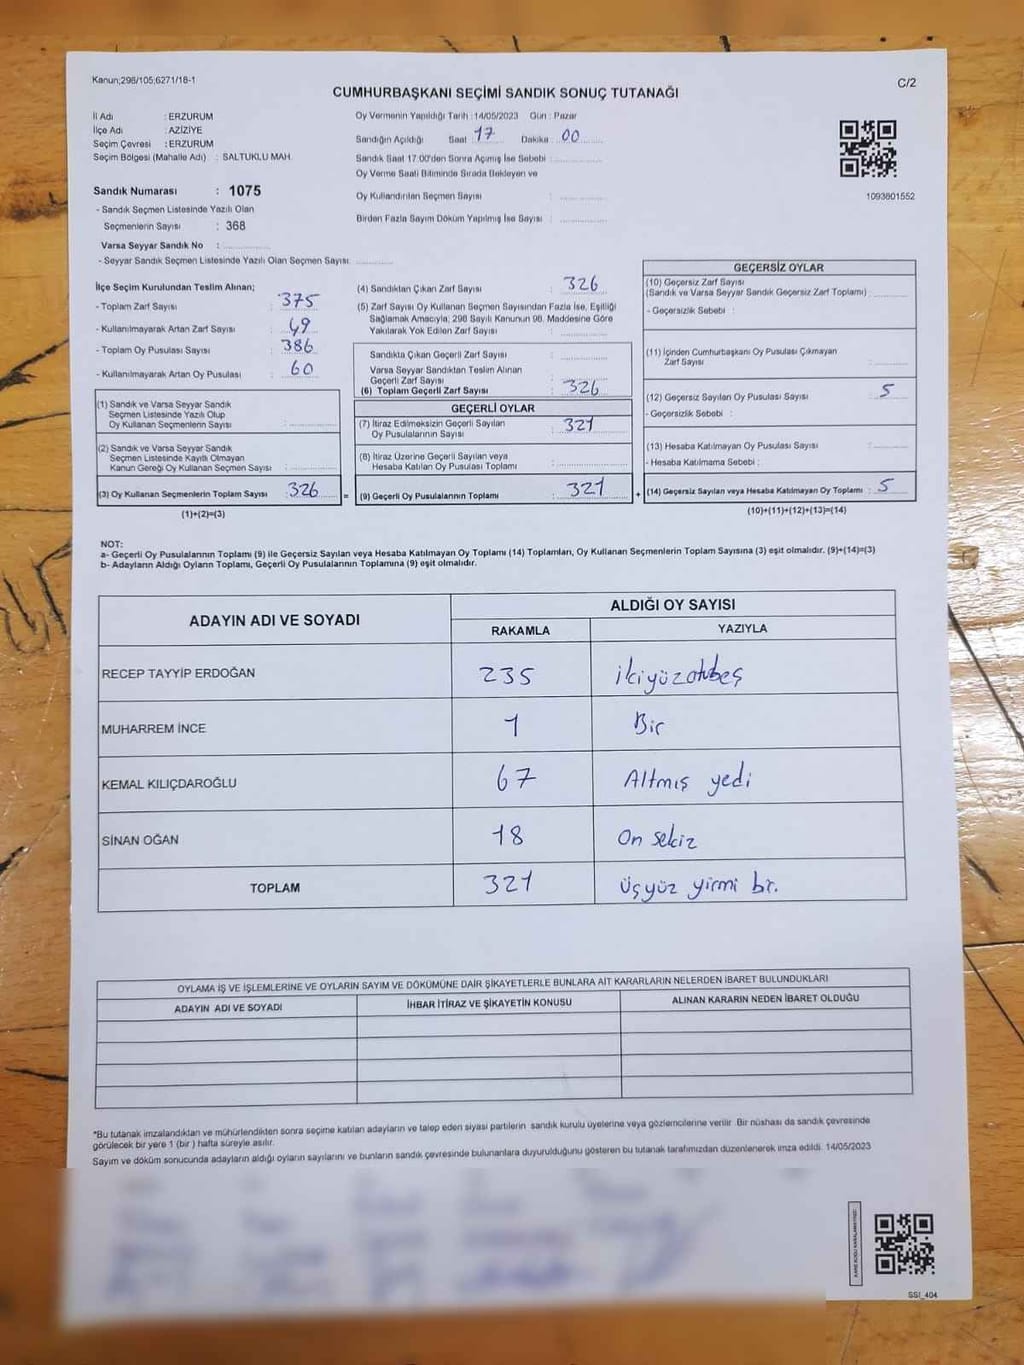 Kanun;298/105;6271/18-1
C/2
CUMHURBAŞKANI SEÇİMİ SANDIK SONUÇ TUTANAĞI
İl Adı : ERZURUM
İlçe Adı : AZİZİYE
Seçim Çevresi : ERZURUM
Seçim Bölgesi (Mahalle Adı) : SALTUKLU MAH.
Sandık Numarası : 1075
- Sandık Seçmen Listesinde Yazılı Olan
Seçmenlerin Sayısı : 368
Varsa Seyyar Sandık No :
- Seyyar Sandık Seçmen Listesinde Yazılı Olan Seçmen Sayısı:
Oy Vermenin Yapıldığı Tarih : 14/05/2023 Gün : Pazar
Sandığın Açıldığı Saat : 17 Dakika : 00
Sandık Saat 17:00'den Sonra Açımış İse Sebebi :
Oy Verme Saati Bitiminde Sırada Bekleyen ve
Oy Kullandırılan Seçmen Sayısı :
Birden Fazla Sayım Döküm Yapılmış İse Sayısı :
1093801552
İlçe Seçim Kurulundan Teslim Alınan;
- Toplam Zarf Sayısı : 375
- Kullanılmayarak Artan Zarf Sayısı : 49
- Toplam Oy Pusulası Sayısı : 386
- Kullanılmayarak Artan Oy Pusulası : 60
(1) Sandık ve Varsa Seyyar Sandık
Seçmen Listesinde Yazılı Olup
Oy Kullanan Seçmenlerin Sayısı :
(2) Sandık ve Varsa Seyyar Sandık
Seçmen Listesinde Kayıtlı Olmayan
Kanun Gereği Oy Kullanan Seçmen Sayısı :
(3) Oy Kullanan Seçmenlerin Toplam Sayısı : 326 =
(1)+(2)=(3)
(4) Sandıktan Çıkan Zarf Sayısı : 326
(5) Zarf Sayısı Oy Kullanan Seçmen Sayısından Fazla İse, Eşitliği
Sağlamak Amacıyla; 298 Sayılı Kanunun 98. Maddesine Göre
Yakılarak Yok Edilen Zarf Sayısı :
Sandıkta Çıkan Geçerli Zarf Sayısı :
Varsa Seyyar Sandıktan Teslim Alınan
Geçerli Zarf Sayısı :
(6) Toplam Geçerli Zarf Sayısı : 326
GEÇERLİ OYLAR
(7) İtiraz Edilmeksizin Geçerli Sayılan
Oy Pusulalarının Sayısı : 321
(8) İtiraz Üzerine Geçerli Sayılan veya
Hesaba Katılan Oy Pusulası Toplamı :
(9) Geçerli Oy Pusulalarının Toplamı : 321 +
GEÇERSİZ OYLAR
(10) Geçersiz Zarf Sayısı
(Sandık ve Varsa Seyyar Sandık Geçersiz Zarf Toplamı) :
- Geçersizlik Sebebi :
(11) İçinden Cumhurbaşkanı Oy Pusulası Çıkmayan
Zarf Sayısı :
(12) Geçersiz Sayılan Oy Pusulası Sayısı : 5
- Geçersizlik Sebebi :
(13) Hesaba Katılmayan Oy Pusulası Sayısı :
- Hesaba Katılmama Sebebi :
(14) Geçersiz Sayılan veya Hesaba Katılmayan Oy Toplamı : 5
(10)+(11)+(12)+(13)=(14)
NOT:
a- Geçerli Oy Pusulalarının Toplamı (9) ile Geçersiz Sayılan veya Hesaba Katılmayan Oy Toplamı (14) Toplamları, Oy Kullanan Seçmenlerin Toplam Sayısına (3) eşit olmalıdır. (9)+(14)=(3)
b- Adayların Aldığı Oyların Toplamı, Geçerli Oy Pusulalarının Toplamına (9) eşit olmalıdır.
ADAYIN ADI VE SOYADI
ALDIĞI OY SAYISI
RAKAMLA YAZIYLA
RECEP TAYYİP ERDOĞAN 235 ikiyüzotuzbeş
MUHARREM İNCE 1 Bir
KEMAL KILIÇDAROĞLU 67 Altmış yedi
SİNAN OĞAN 18 On sekiz
TOPLAM 321 Üçyüz yirmi bir.
OYLAMA İŞ VE İŞLEMLERİNE VE OYLARIN SAYIM VE DÖKÜMÜNE DAİR ŞİKAYETLERLE BUNLARA AİT KARARLARIN NELERDEN İBARET BULUNDUKLARI
ADAYIN ADI VE SOYADI İHBAR İTİRAZ VE ŞİKAYETİN KONUSU ALINAN KARARIN NEDEN İBARET OLDUĞU
*Bu tutanak imzalandıktan ve mühürlendikten sonra seçime katılan adayların ve talep eden siyasi partilerin sandık kurulu üyelerine veya gözlemcilerine verilir. Bir nüshası da sandık çevresinde
görülecek bir yere 1 (bir) hafta süreyle asılır.
Sayım ve döküm sonucunda adayların aldığı oyların sayılarını ve bunların sandık çevresinde bulunanlara duyurulduğunu gösteren bu tutanak tarafımızdan düzenlenerek imza edildi. 14/05/2023
SSI_404